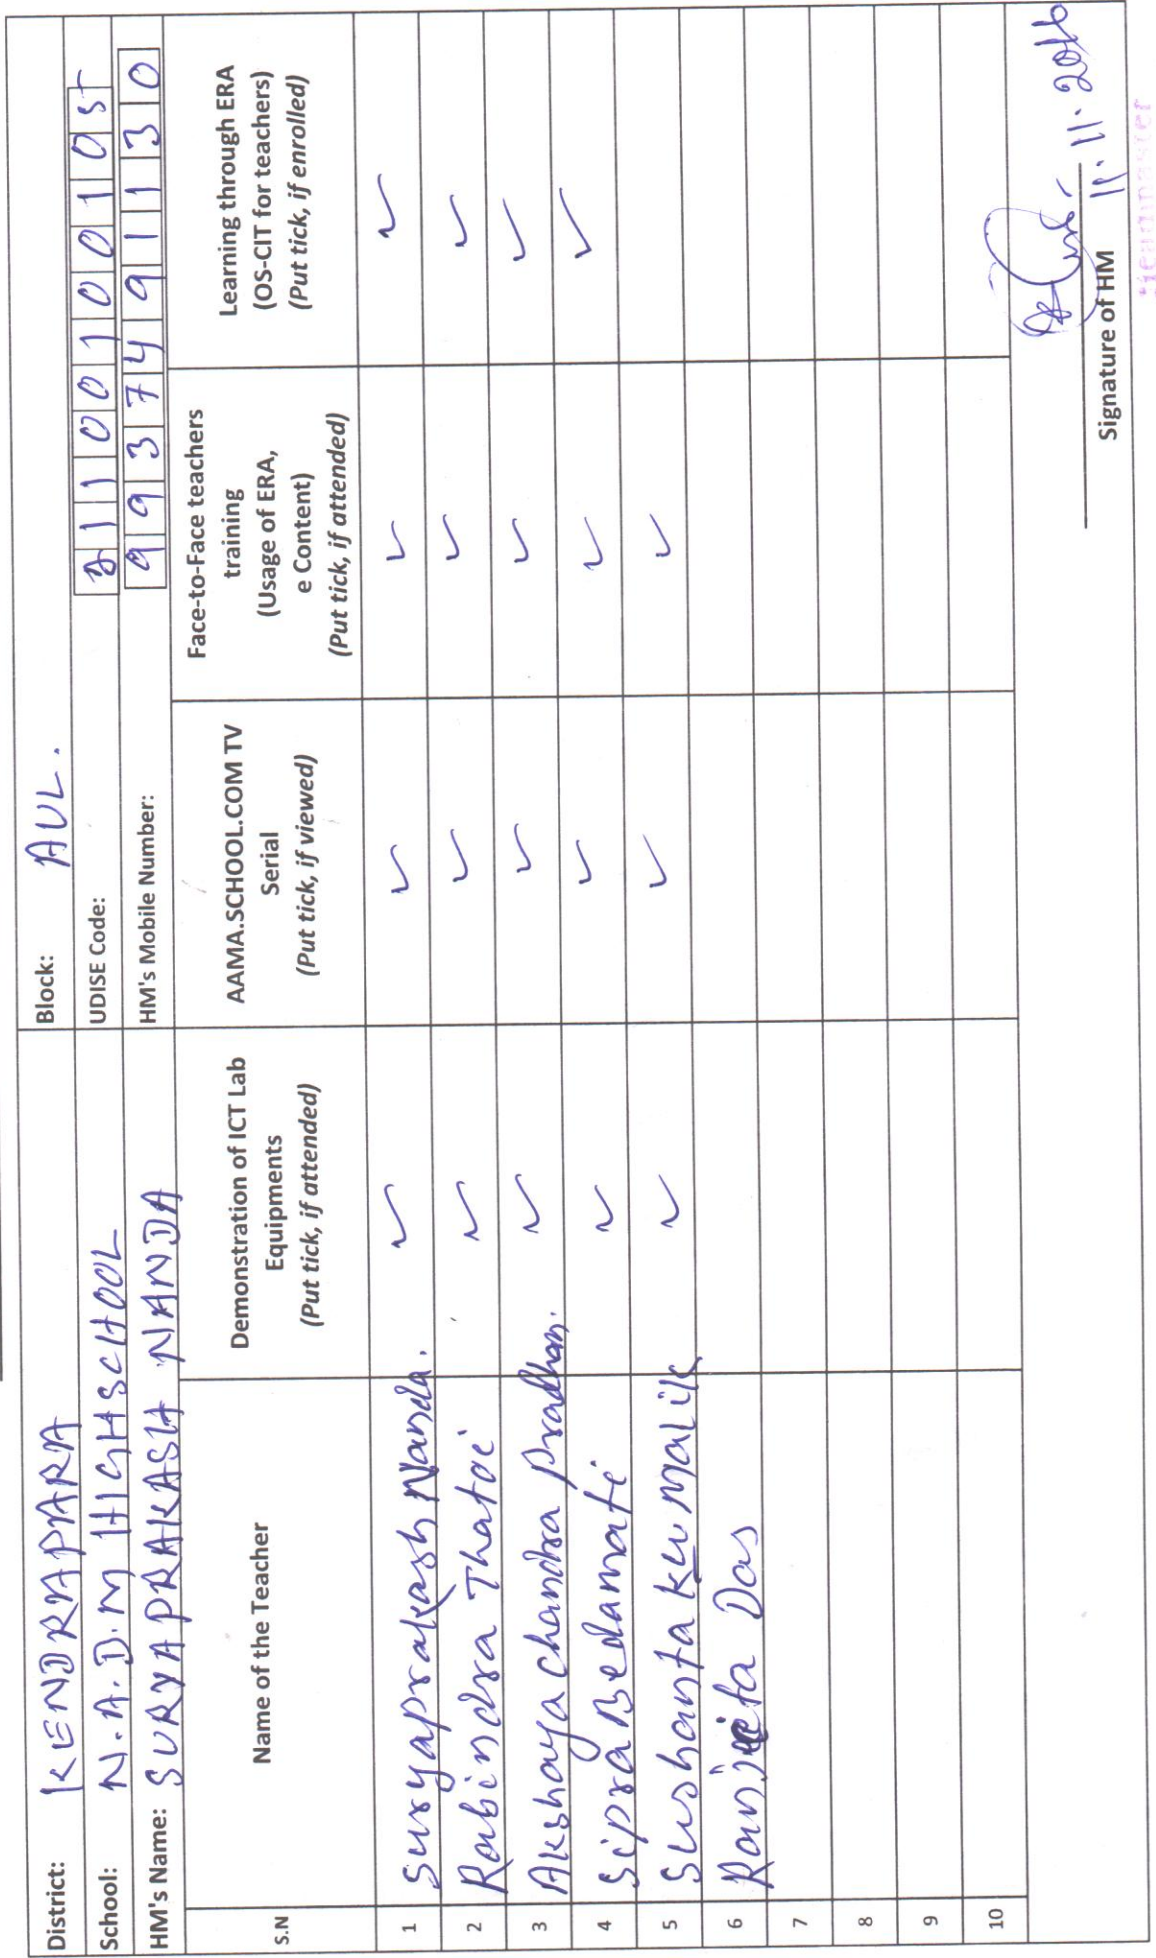 District: KENDRAPARA Block: AUL.
School: N.A.D.M HIGHSCHOOL UDISE Code: 21100100105
HM's Name: SURYAPRAKASH NANDA HM's Mobile Number: 9937491130
S.N Name of the Teacher Demonstration of ICT Lab Equipments (Put tick, if attended) AAMA.SCHOOL.COM TV Serial (Put tick, if viewed) Face-to-Face teachers training (Usage of ERA, e Content) (Put tick, if attended) Learning through ERA (OS-CIT for teachers) (Put tick, if enrolled)
1 Suryaprakash Nanda. ✓ ✓ ✓ ✓
2 Rabindra Thatoi ✓ ✓ ✓ ✓
3 Akshaya chandra pradhan. ✓ ✓ ✓ ✓
4 Sipra Bedamati ✓ ✓ ✓ ✓
5 Sushanta ku malik ✓ ✓ ✓
6 Ranjeeta Das
7
8
9
10
11.11.2016
Signature of HM
Headmaster